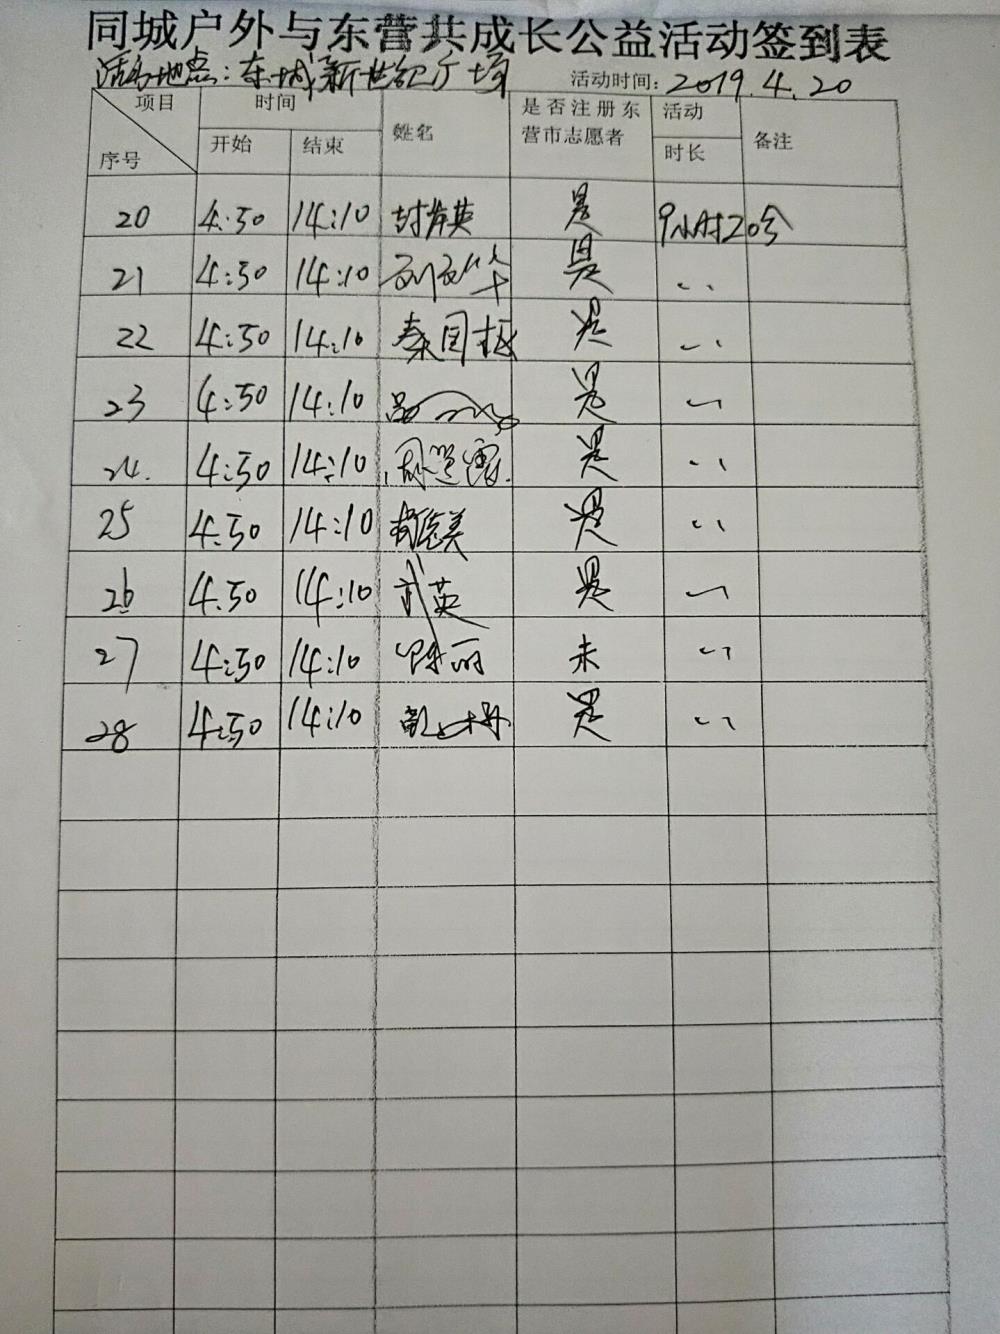 同城户外与东营共成长公益活动签到表
活动地点：东城新世纪广场 活动时间：2019.4.20
项目 序号 时间 姓名 是否注册东营市志愿者 活动时长 备注
开始 结束
20 4:50 14:10 是 9小时20分
21 4:50 14:10 是 〃
22 4:50 14:10 秦国 是 〃
23 4:50 14:10 吕 是 〃
24. 4:50 14:10 周 是 〃
25 4.50 14:10 美 是 〃
26 4.50 14:10 英 是 〃
27 4:50 14:10 丽 未 〃
28 4:50 14:10 是 〃